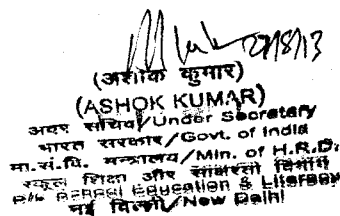 27/8/13
(अशोक कुमार)
(ASHOK KUMAR)
अवर सचिव/Under Secretary
भारत सरकार/Govt. of India
मा.सं.वि. मन्त्रालय/Min. of H.R.D.
स्कूल शिक्षा और साक्षरता विभाग
D/o School Education & Literacy
नई दिल्ली/New Delhi